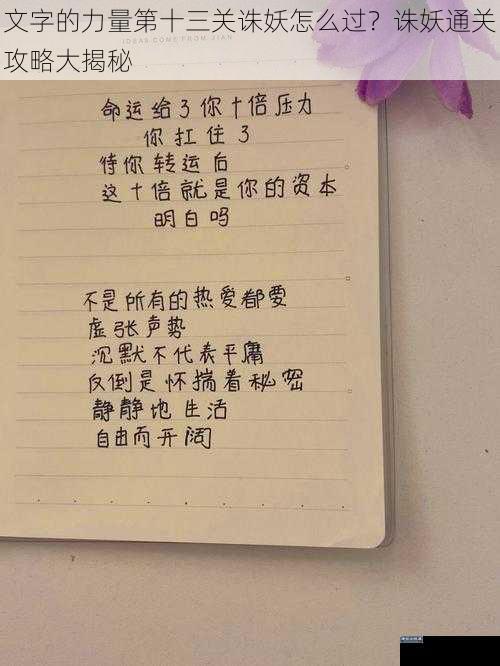 文字的力量第十三关诛妖怎么过？诛妖通关
攻略大揭秘
IDEAS COME FROM JIAN
命运给了你十倍压力
你扛住了
待你转运后
这十倍就是你的资本
明白吗
不是所有的热爱都要
虚张声势
沉默不代表平庸
反倒是怀揣着秘密
静静地生活
自由而开阔